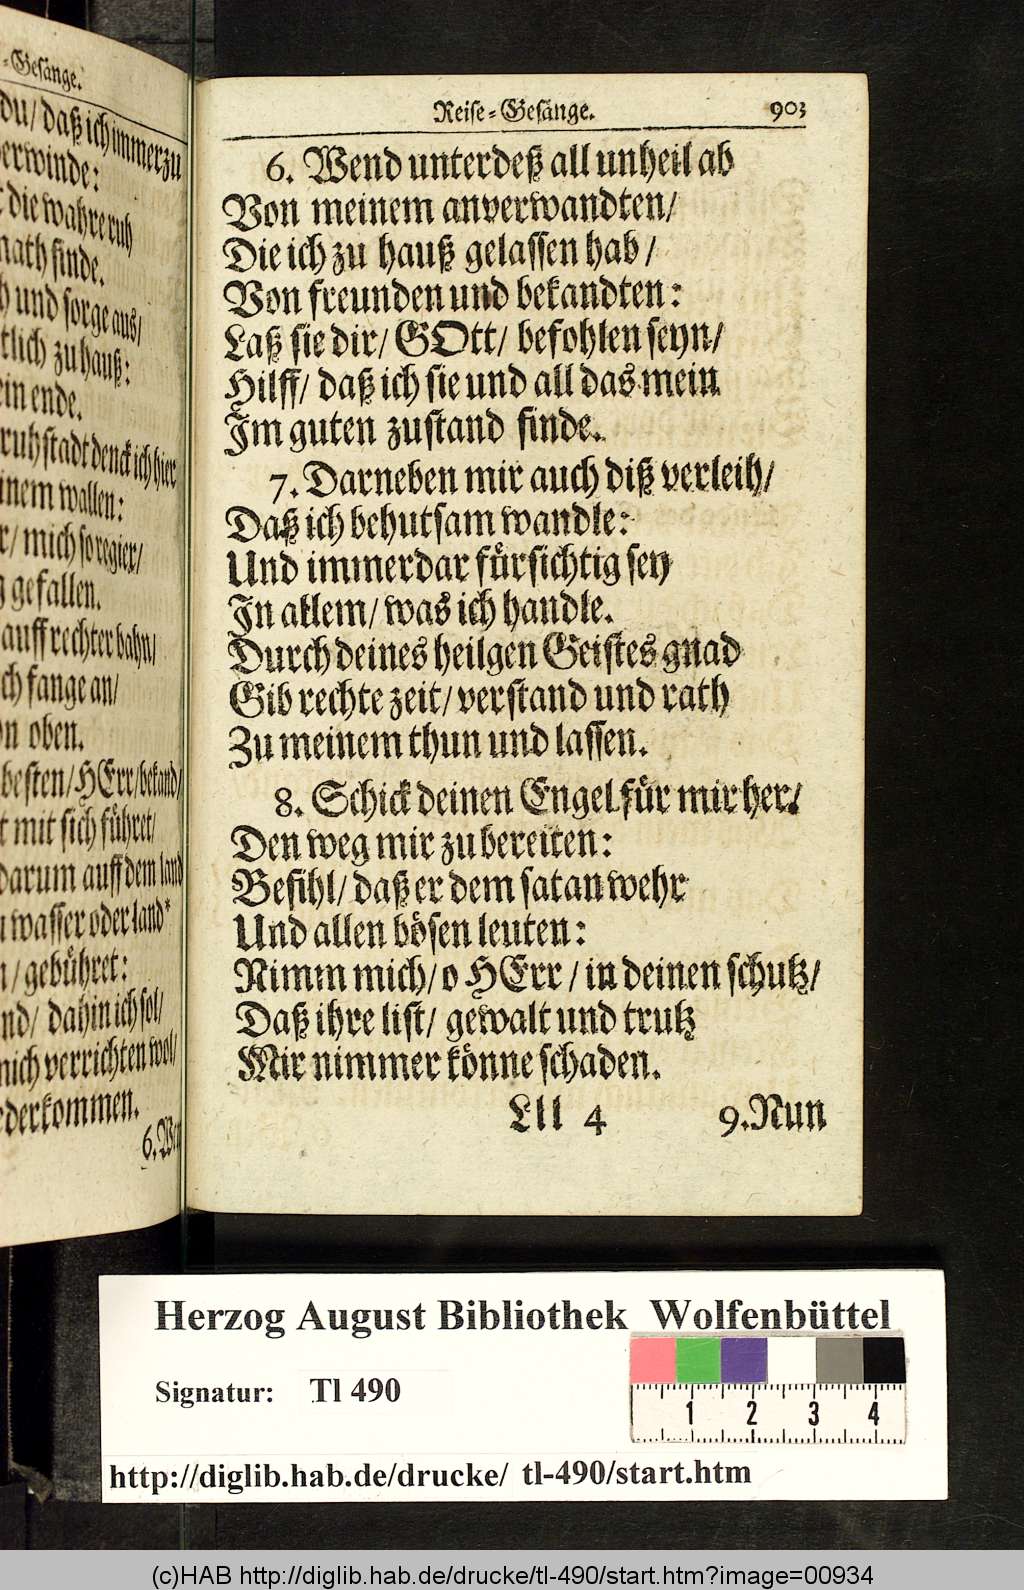 -Gesänge.
du/ daß ich immerzu
erwinde:
die wahre ruh
nath finde.
und sorge aus/
tlich zu hauß:
ein ende.
ruhstadt denck ich hier
inem wallen:
r/ mich so regier/
gefallen.
auff rechter bahn/
ch fange an/
on oben.
besten/ HErr/ bekand/
t mit sich führet/
darum auff dem land
wasser oder land*
n/ gebühret:
nd/ dahin ich sol/
mich verrichten wol/
ederkommen.
6. Wen
Reise-Gesänge. 903
6. Wend unterdeß all unheil ab
Von meinem anverwandten/
Die ich zu hauß gelassen hab/
Von freunden und bekandten:
Laß sie dir/ GOtt/ befohlen seyn/
Hilff/ daß ich sie und all das mein
Im guten zustand finde.
7. Darneben mir auch diß verleih/
Daß ich behutsam wandle:
Und immerdar fürsichtig sey
In allem/ was ich handle.
Durch deines heilgen Geistes gnad
Gib rechte zeit/ verstand und rath
Zu meinem thun und lassen.
8. Schick deinen Engel für mir her/
Den weg mir zu bereiten:
Befihl/ daß er dem satan wehr
Und allen bösen leuten:
Nimm mich/ o HErr/ in deinen schutz/
Daß ihre list/ gewalt und trutz
Mir nimmer könne schaden.
Lll 4 9. Nun
Herzog August Bibliothek Wolfenbüttel
Signatur: Tl 490
1 2 3 4
http://diglib.hab.de/drucke/ tl-490/start.htm
(c)HAB http://diglib.hab.de/drucke/tl-490/start.htm?image=00934